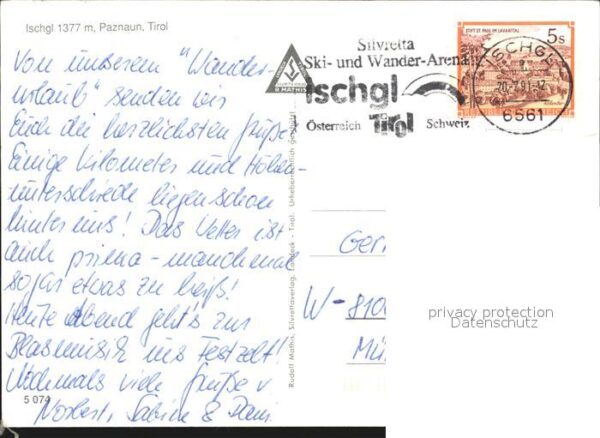 Ischl 1377 m, Paznaun, Tirol
Von unserem "Wander-
urlaub" senden wir
Euch die herzlichsten Grüße.
Einige Kilometer und Höhen-
unterschiede liegen schon
hinter uns! Das Wetter ist
auch prima - manchmal
sogar etwas zu heiß!
Heute Abend geht's zur
Blasmusik ins Festzelt!
Nochmals viele Grüße v.
Norbert, Sabine & Dani
5 074
Rudolf Mathis, Silvrettaverlag, Landeck - Tirol. Urheberrechtlich geschützt
R MATHIS
Silvretta
Ski- und Wander-Arena
Ischgl
Österreich Tirol Schweiz
STIFT ST. PAUL IM LAVANTTAL
5s
ISCHGL
20.-7.91-12
6561
Ger
W-8100
Mü
privacy protection
Datenschutz